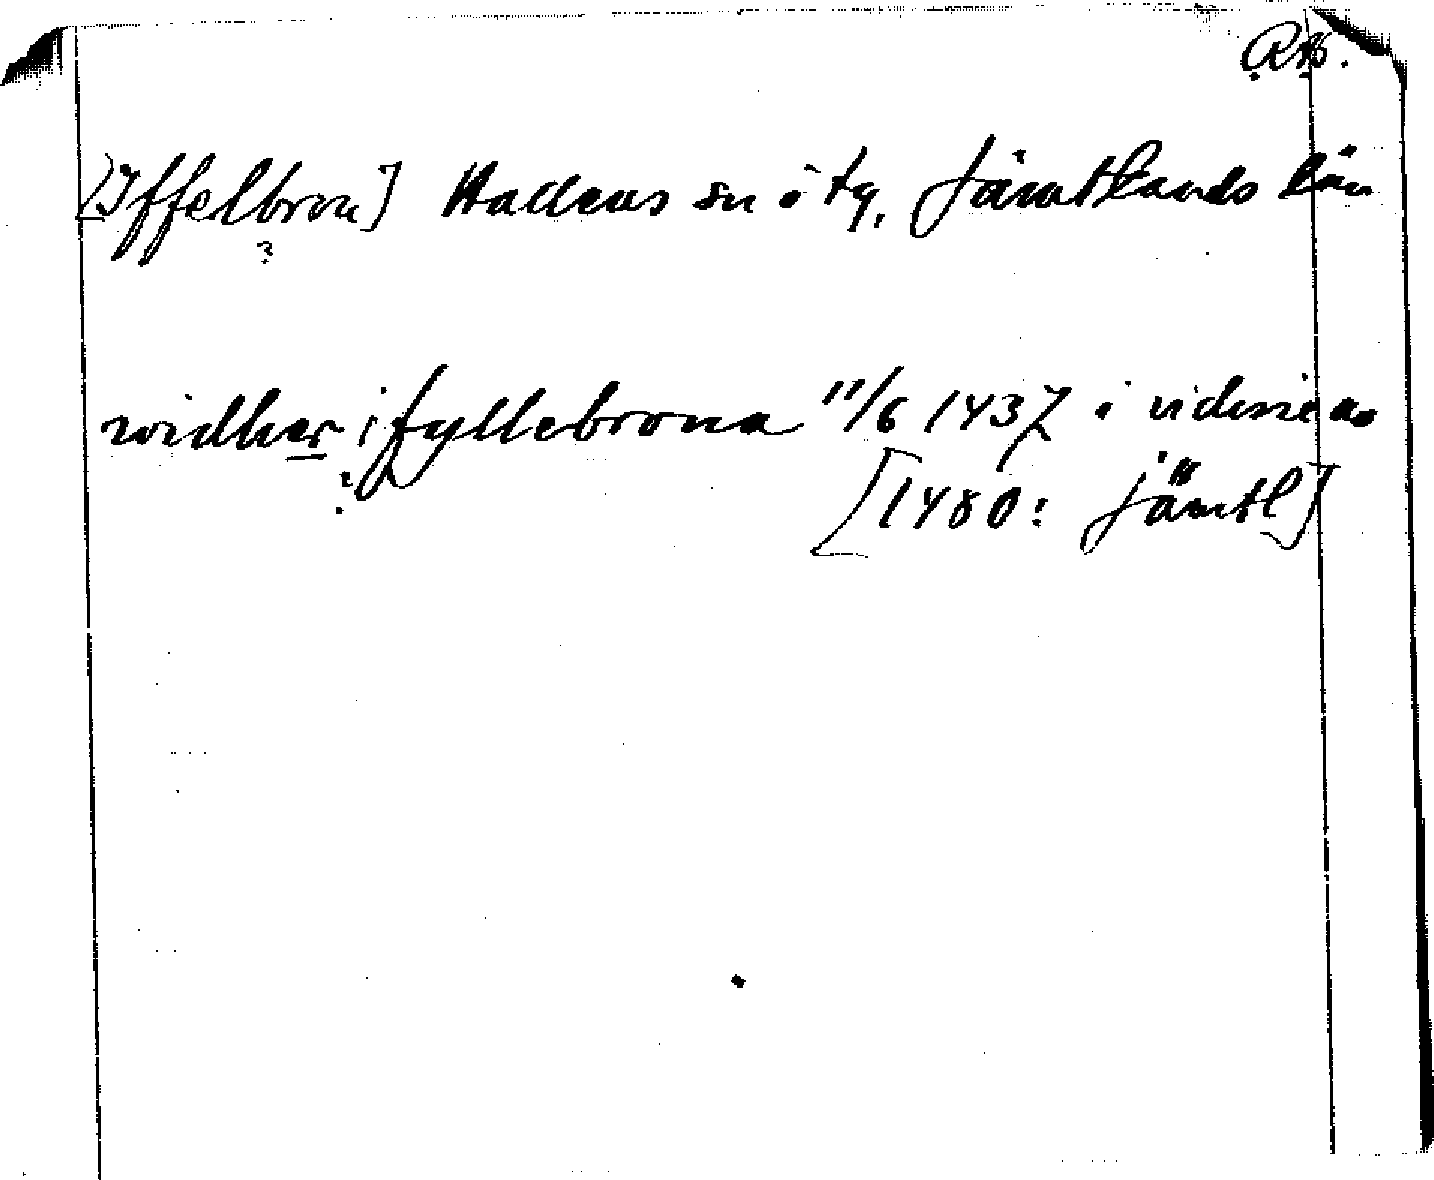 RAp.
[Iffelbron] Hackås sn ö tg, Jämtlands län
?
widher ifyllebrona 11/6 1437 i vidimerad
?
[1480: Jämtl]